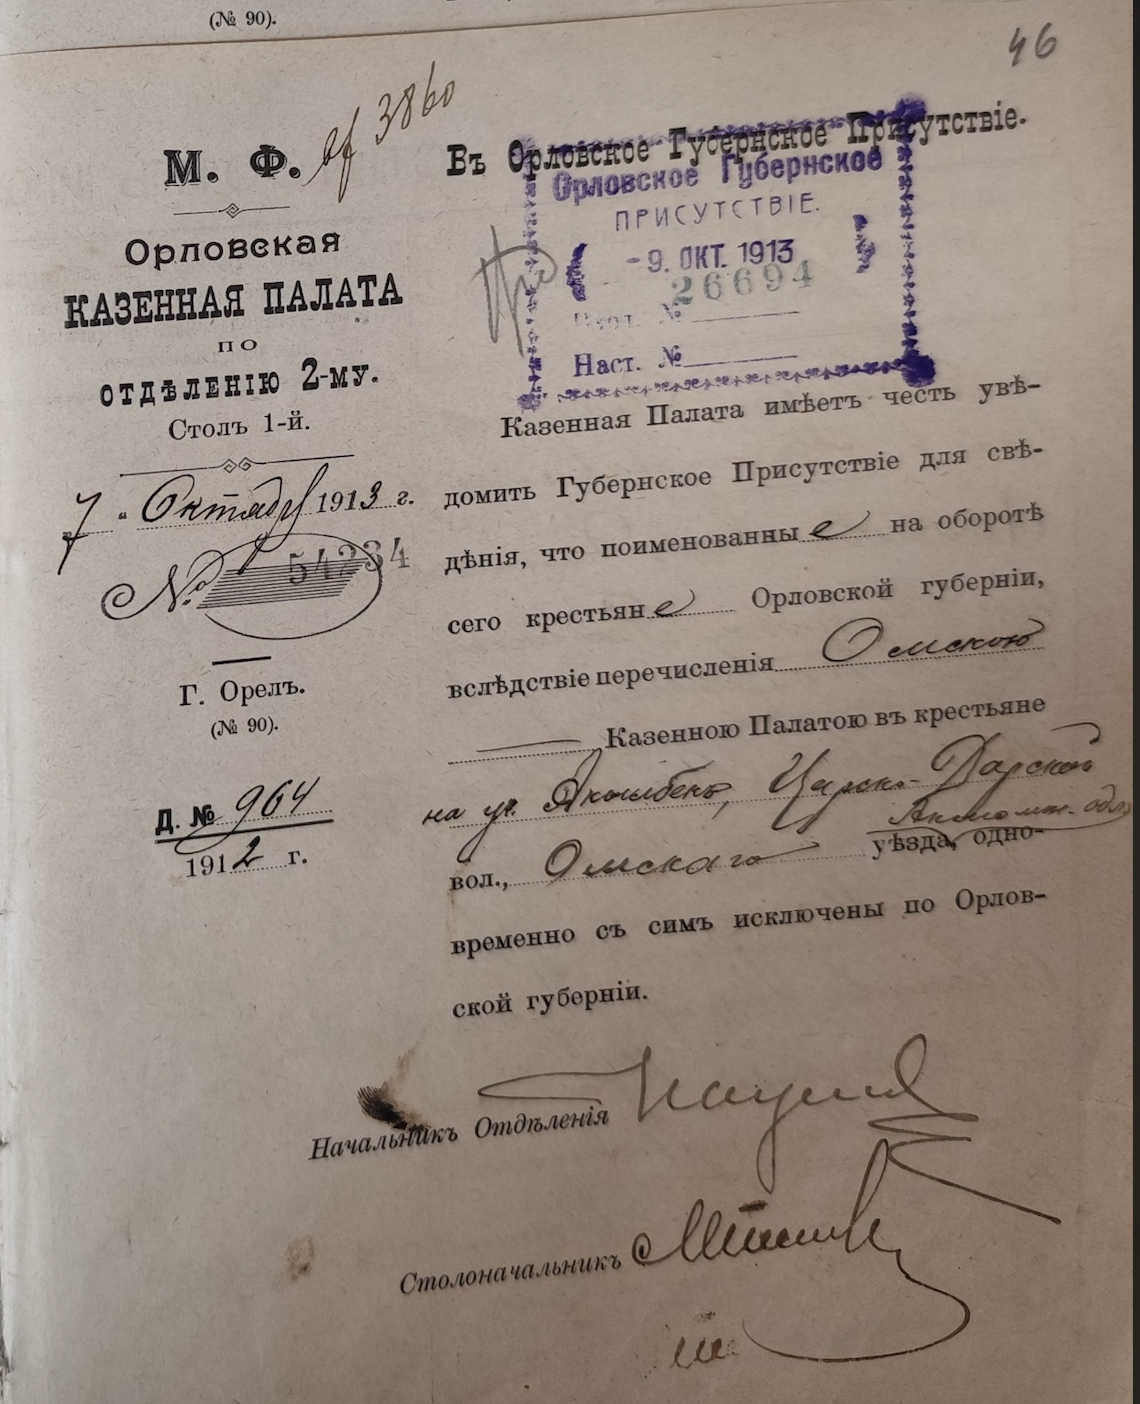 (№ 90).
46
3860
М. Ф.
Орловская
КАЗЕННАЯ ПАЛАТА
ПО
ОТДѢЛЕНІЮ 2-МУ.
Столъ 1-й.
7 " Октября 1913 г.
№ 54234
Г. Орелъ.
(№ 90).
Д. № 964
1912 г.
Въ Орловское Губернское Присутствіе.
Орловское Губернское
ПРИСУТСТВІЕ.
- 9. ОКТ. 1913
26694
№
Наст. №
Казенная Палата имѣетъ честь увѣ-
домить Губернское Присутствіе для свѣ-
дѣнія, что поименованные на оборотѣ
сего крестьяне Орловской губерніи,
вслѣдствіе перечисленія Омскою
Казенною Палатою въ крестьяне
на уч. Царско-Дарской
Акмолин. обл.
вол., Омскаго уѣзда, одно-
временно съ симъ исключены по Орлов-
ской губерніи.
Начальникъ Отдѣленія
Столоначальникъ